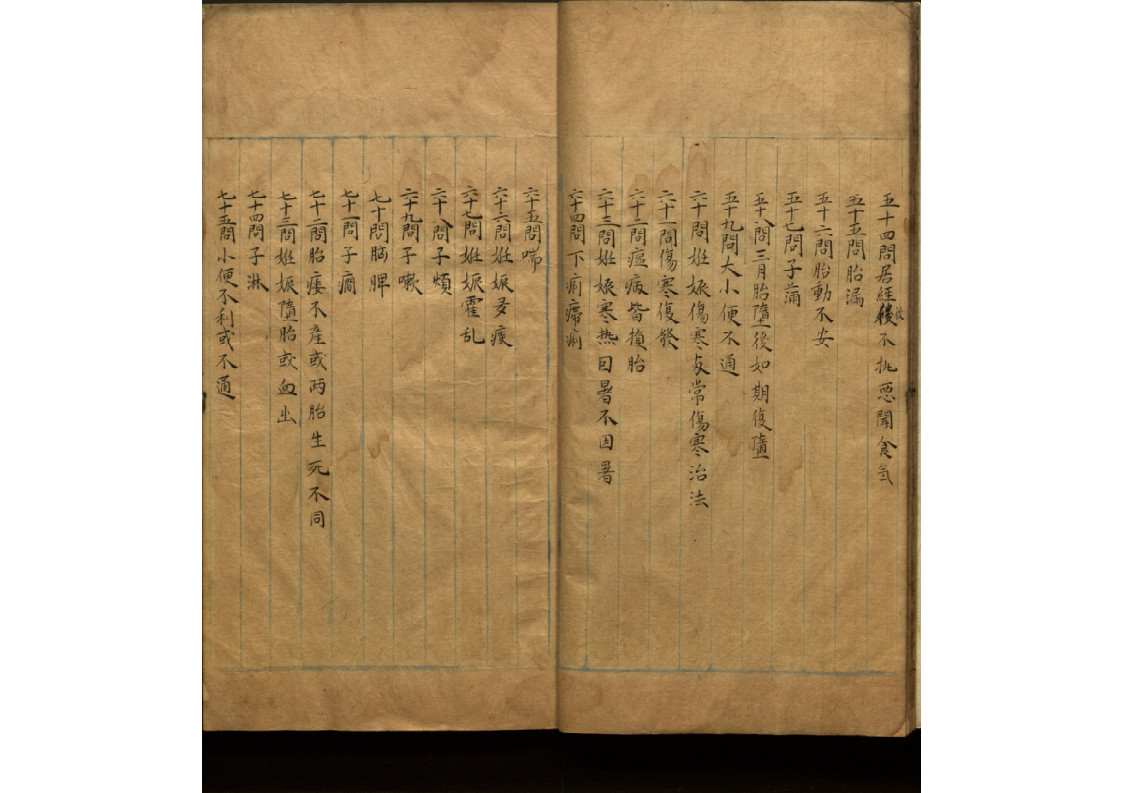 五十四問居經後不批惡聞食氣
五十五問胎漏
五十六問胎動不安
五十七問子滿
五十八問三月胎墮後如期復墮
五十九問大小便不通
六十問姙娠傷寒與常傷寒治法
六十一問傷寒復發
六十二問瘟病皆損胎
六十三問姙娠寒热因暑不因暑
六十四問下痢瘧痢
六十五問喘
六十六問姙娠多痰
六十七問姙娠霍乱
六十八問子煩
六十九問子嗽
七十問胸脾
七十一問子癇
七十二問胎痿不產或两胎生死不同
七十三問姙娠墮胎或血出
七十四問子淋
七十五問小便不利或不通